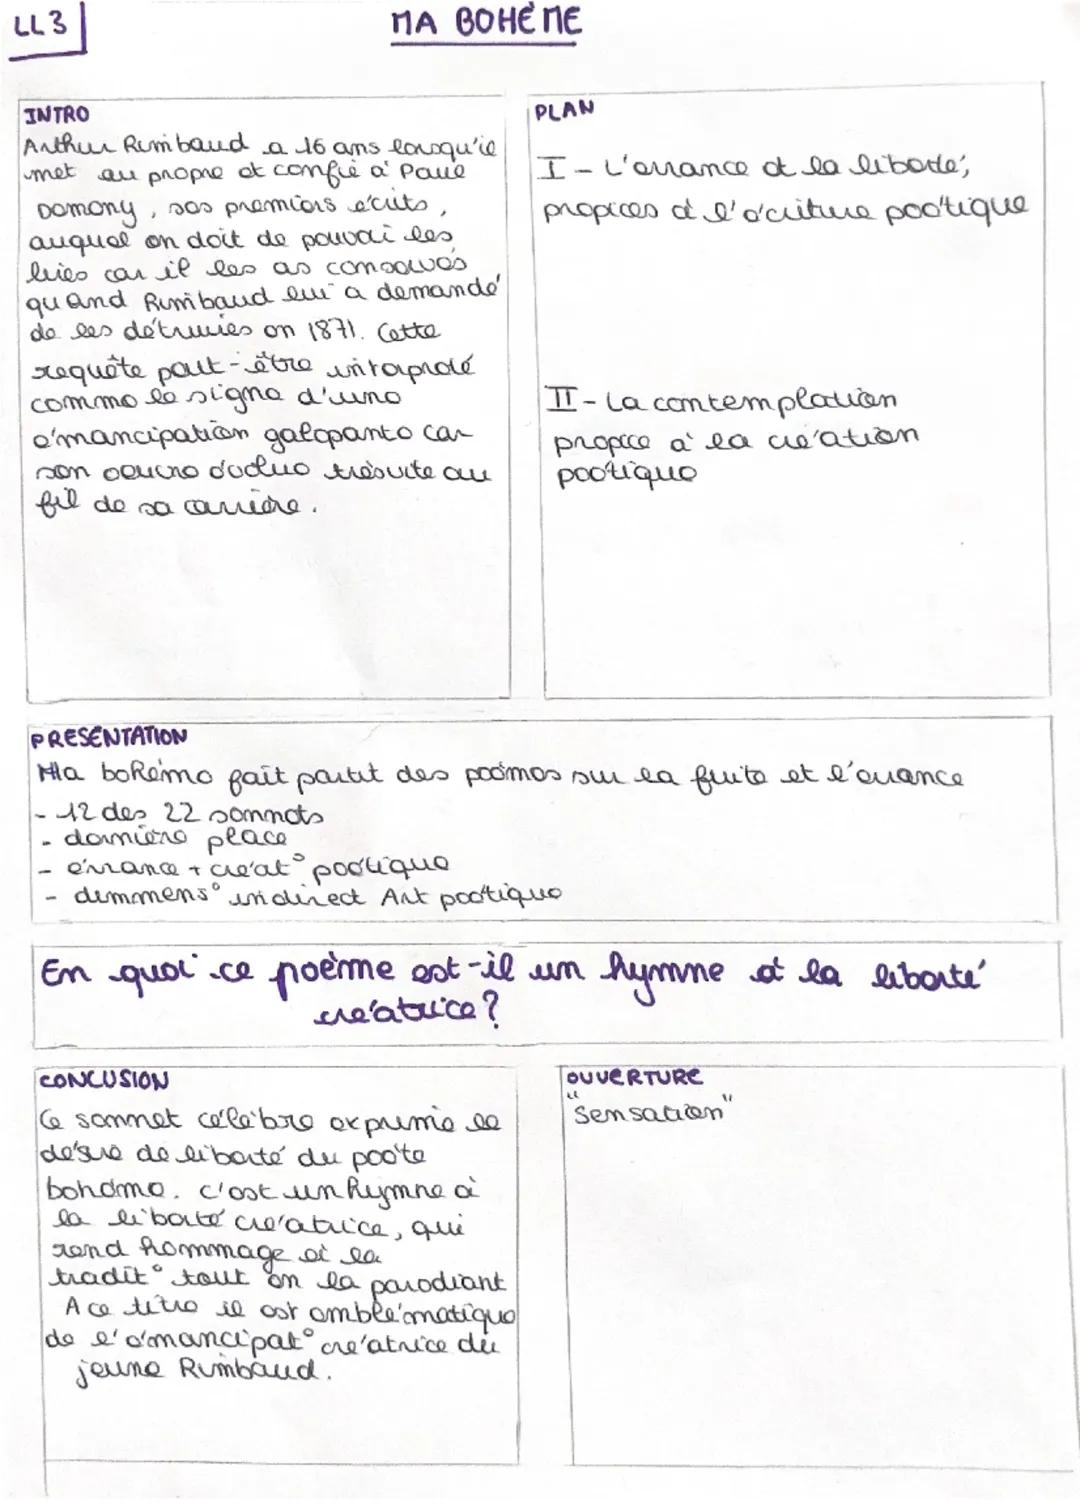 LL3
MA BOHÈME
INTRO
Arthur Rimbaud a 16 ans lorsqu'il
met au propre et confie à Paul
Demeny, ses premiers écrits,
auquel on doit de pouvoi les
lires car il les as conservés
quand Rimbaud lui a demandé
de les détruires en 1871. Cette
requête peut-être interprété
comme le signe d'une
émancipation galopante car
son oeuvre évolue très vite au
fil de sa carrière.
PLAN
I - L'errance et la liberté,
propices à l'écriture poétique
II - La contemplation
propice à la création
poétique
PRESENTATION
Ma bohème fait partit des poèmes sur la fuite et l'errance
- 12 des 22 sonnets
- dernière place
- errance + créat° poétique
- dimmens° indirect Art poétique
En quoi ce poème est-il un hymne à la liberté
créatrice ?
CONCLUSION
Ce sonnet célèbre exprime le
désire de liberté du poète
bohème. C'est un hymne à
la liberté créatrice, qui
rend hommage à la
tradit° tout en la parodiant
A ce titre il est emblématique
de l'émancipat° créatrice du
jeune Rimbaud.
OUVERTURE
"Sensation"